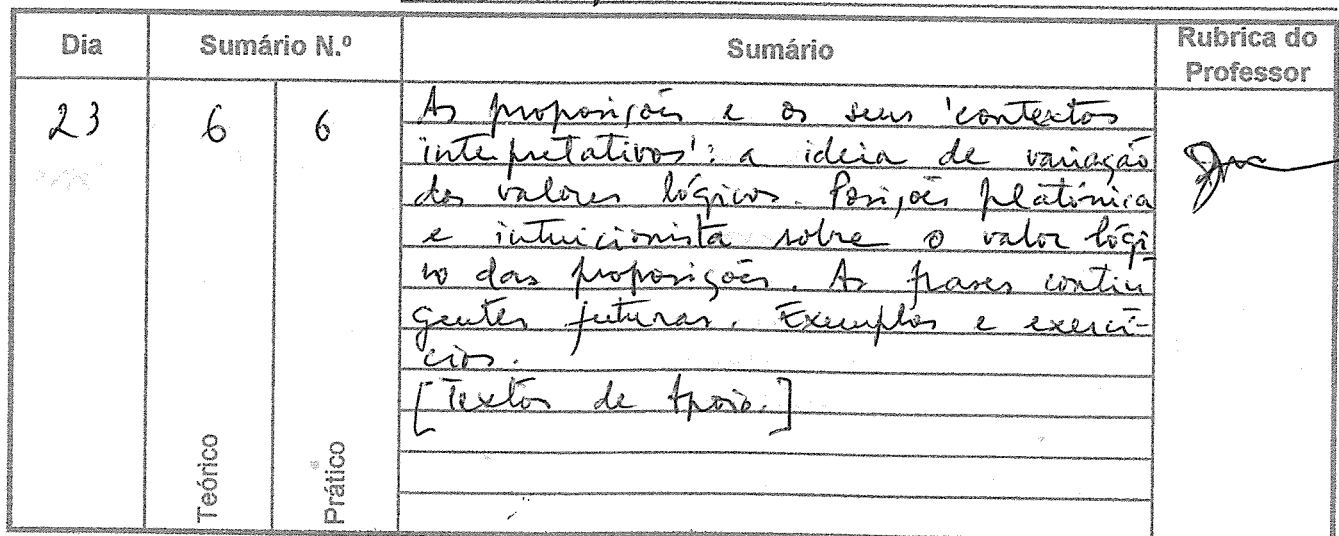 Dia Sumário N.º Sumário Rubrica do Professor
23 6 6
As proposições e os seus 'contextos
interpretativos': a ideia de variação
dos valores lógicos. Posições platónica
e intuicionista sobre o valor lógi
co das proposições. As frases contin
gentes futuras. Exemplos e exercí-
cios.
[Textos de Apoio.]
Teórico Prático